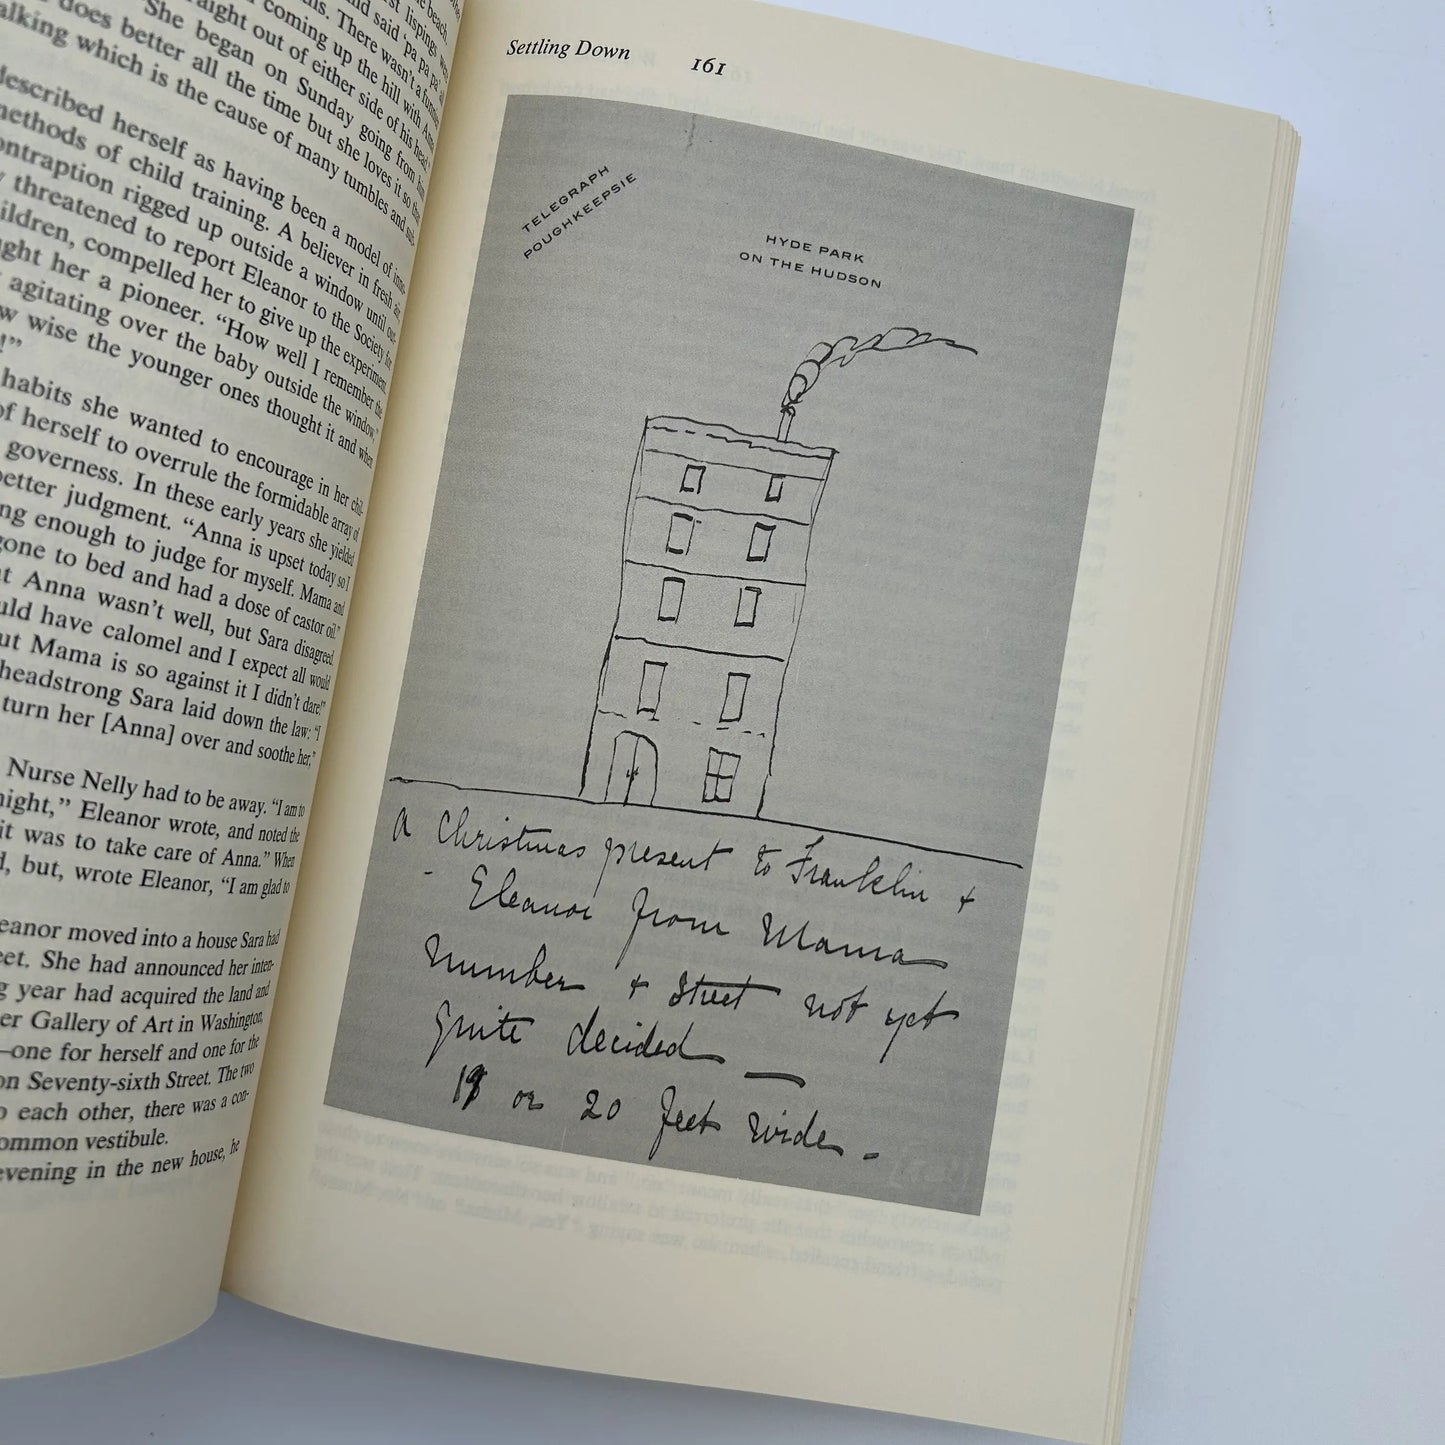 the beach.
st lispings were
nd said 'pa pa pa' all
ns. There wasn't a funnier
coming up the hill with Anna
raight out of either side of his head."
She began on Sunday going from him
does better all the time but she loves it so that
alking which is the cause of many tumbles and sub-
described herself as having been a model of inno-
methods of child training. A believer in fresh air,
ontraption rigged up outside a window until out-
y threatened to report Eleanor to the Society for
ildren, compelled her to give up the experiment.
ught her a pioneer. "How well I remember the
agitating over the baby outside the window,"
ow wise the younger ones thought it and when
!"
habits she wanted to encourage in her chil-
of herself to overrule the formidable array of
governess. In these early years she yielded
better judgment. "Anna is upset today so I
ng enough to judge for myself. Mama and
gone to bed and had a dose of castor oil."
at Anna wasn't well, but Sara disagreed.
uld have calomel and I expect all would
ut Mama is so against it I didn't dare!"
headstrong Sara laid down the law: "I
turn her [Anna] over and soothe her,"
Nurse Nelly had to be away. "I am to
night," Eleanor wrote, and noted the
it was to take care of Anna." When
d, but, wrote Eleanor, "I am glad to
eanor moved into a house Sara had
eet. She had announced her inten-
g year had acquired the land and
er Gallery of Art in Washington,
—one for herself and one for the
on Seventy-sixth Street. The two
o each other, there was a con-
ommon vestibule.
evening in the new house, he
Settling Down 161
TELEGRAPH
POUGHKEEPSIE
HYDE PARK
ON THE HUDSON
A Christmas present to Franklin +
- Eleanor from Mama
number + street not yet
quite decided —
19 or 20 feet wide -